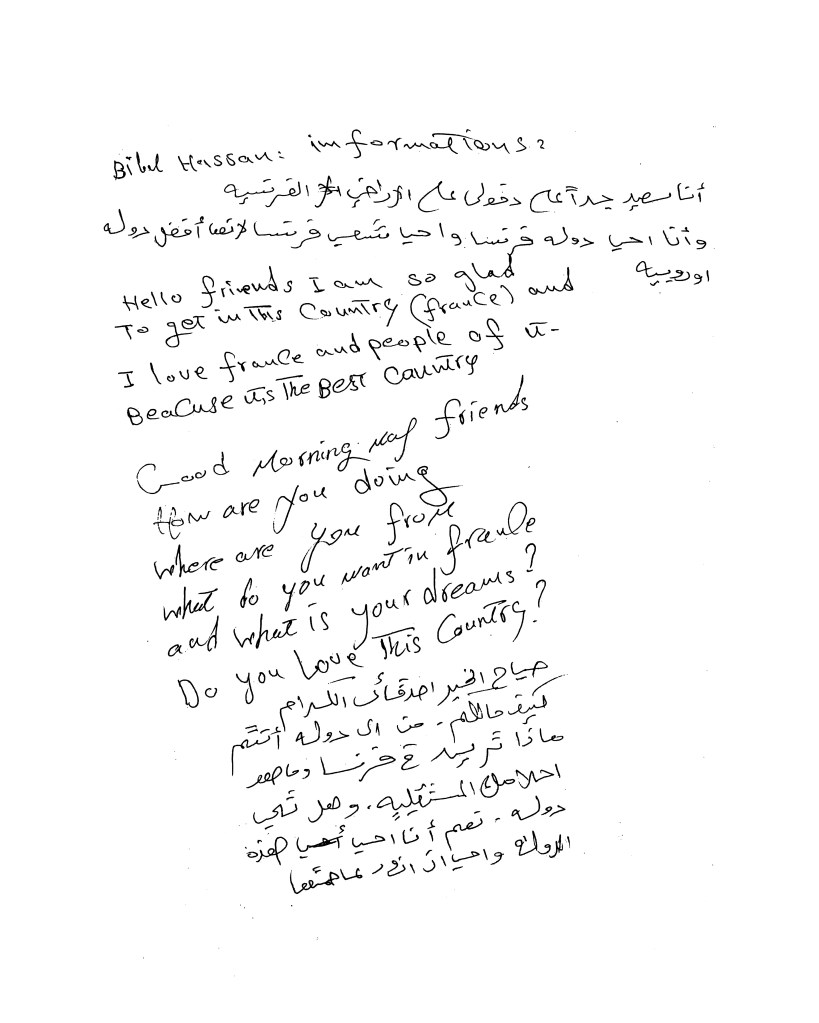 Bibel Hassan: informations:
أنا سعيد جداً على دخولي على الاراضي الفرنسيه
وأنا احب دوله فرنسا واحب شعب فرنسا لانها أفضل دوله
اوروبيه
Hello friends I am so glad
To get in This Country (france) and
I love france and people of it-
Beacuse it,s The Best Country
Good Morning my friends
How are you doing
where are you from
what do you want in france
and what is your dreams?
Do you Love This Country?
صباح الخير اصدقائى الكرام
كيف حالكم. من اى دوله أنتم
ماذا تريد في فرنسا وما هو
احلامك المستقبليه. وهل تحب
دوله. نعم أنا احب هذه
الدوله واحب ان ازور